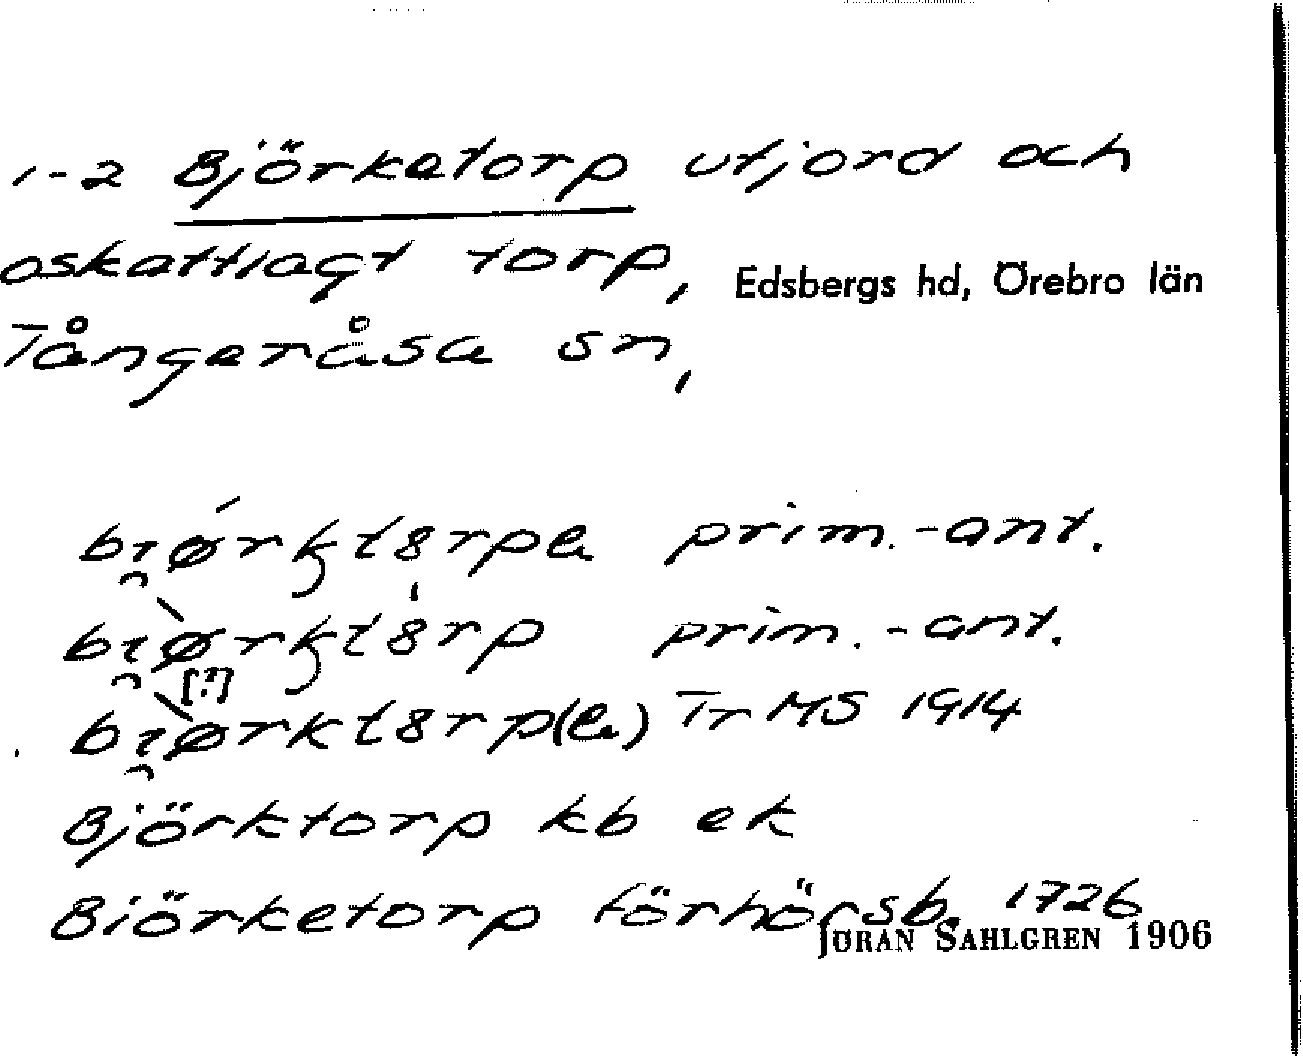 1-2 Björketorp utjord och
oskattlagt torp, Edsbergs hd, Örebro län
Tångeråsa sn,
prim.-ant.
prim.-ant.
[?]
Tr MS 1914
Björktorp kb ek
Biörketorp förhörsb. 1726
JÖRAN SAHLGREN 1906